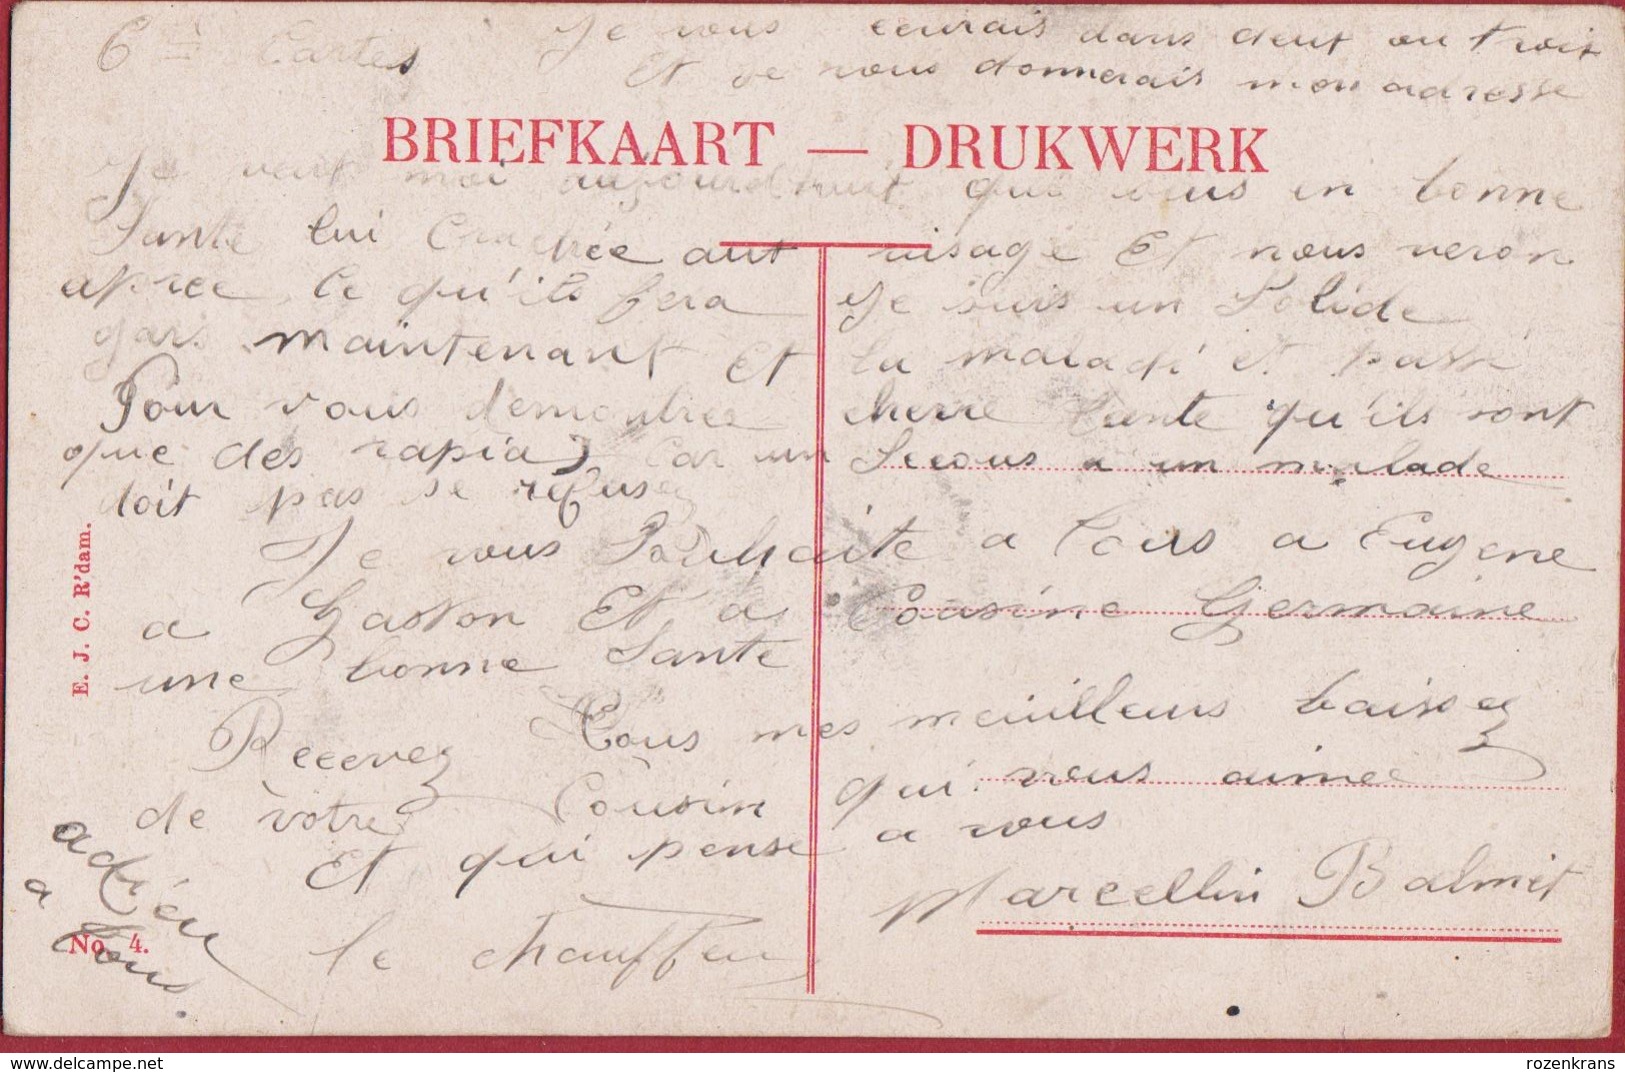 6me Cartes
Je vous ecurais dans deut ou troit
Et je vous donnerais mon adresse
BRIEFKAART — DRUKWERK
Je veut moi aujourdhuit que vous en bonne
Sante lui Crachée aut visage Et nous veron
apree Ce qu'ils fera Je suis un Solide
gars maïntenant Et la maladi et passé
Pour vous demontree cherre tante qu'ils sont
que des rapia) Car un Secous a un malade
doit pas se refusez
Je vous Souhaite a tous a Eugene
a Gaston Et a Cousine Germaine
une bonne Sante
Recevez tous mes meuilleurs baissez
de votre Cousin qui vous aimee
Et qui pense a vous
Marcellin Balmet
le chauffeur
adrieu
a tous
E. J. C. R'dam.
No. 4.
delcampe.net
rozenkrans